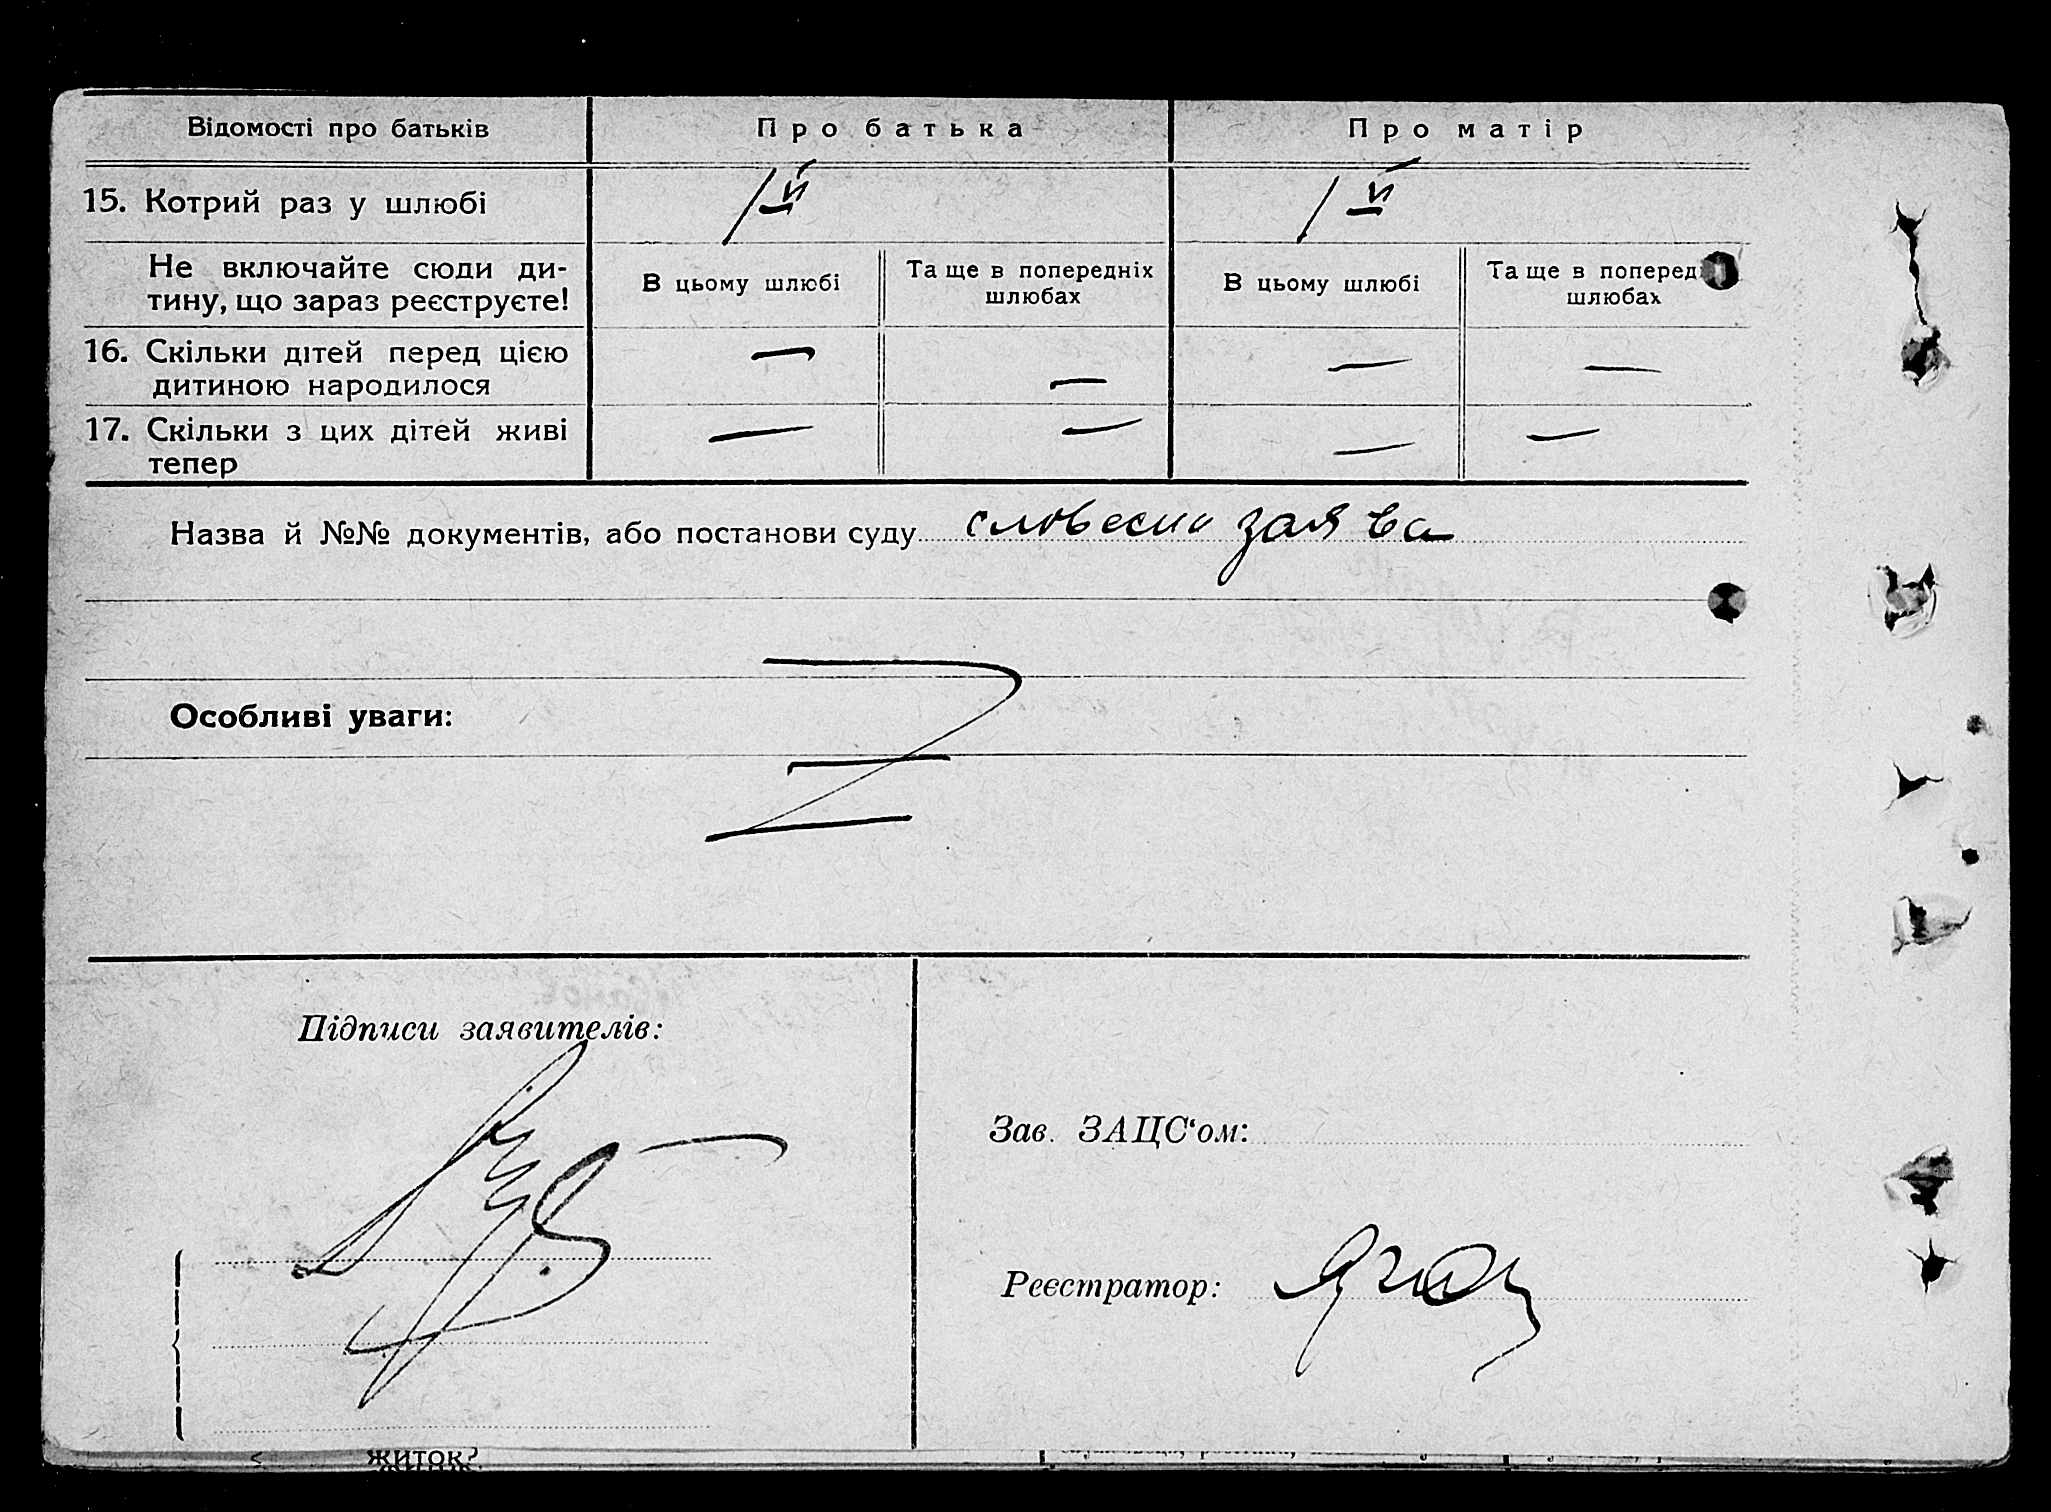 Відомості про батьків
Про батька
Про матір
15. Котрий раз у шлюбі
1й
1й
Не включайте сюди ди-
тину, що зараз реєструєте!
В цьому шлюбі
Та ще в попередніх
шлюбах
В цьому шлюбі
Та ще в поперед
шлюбах
16. Скільки дітей перед цією
дитиною народилося
— — — —
17. Скільки з цих дітей живі
тепер
— — — —
Назва й №№ документів, або постанови суду словесна заява
Особливі уваги:
Підписи заявителів:
Зав. ЗАЦС‘ом:
Реєстратор:
житок?